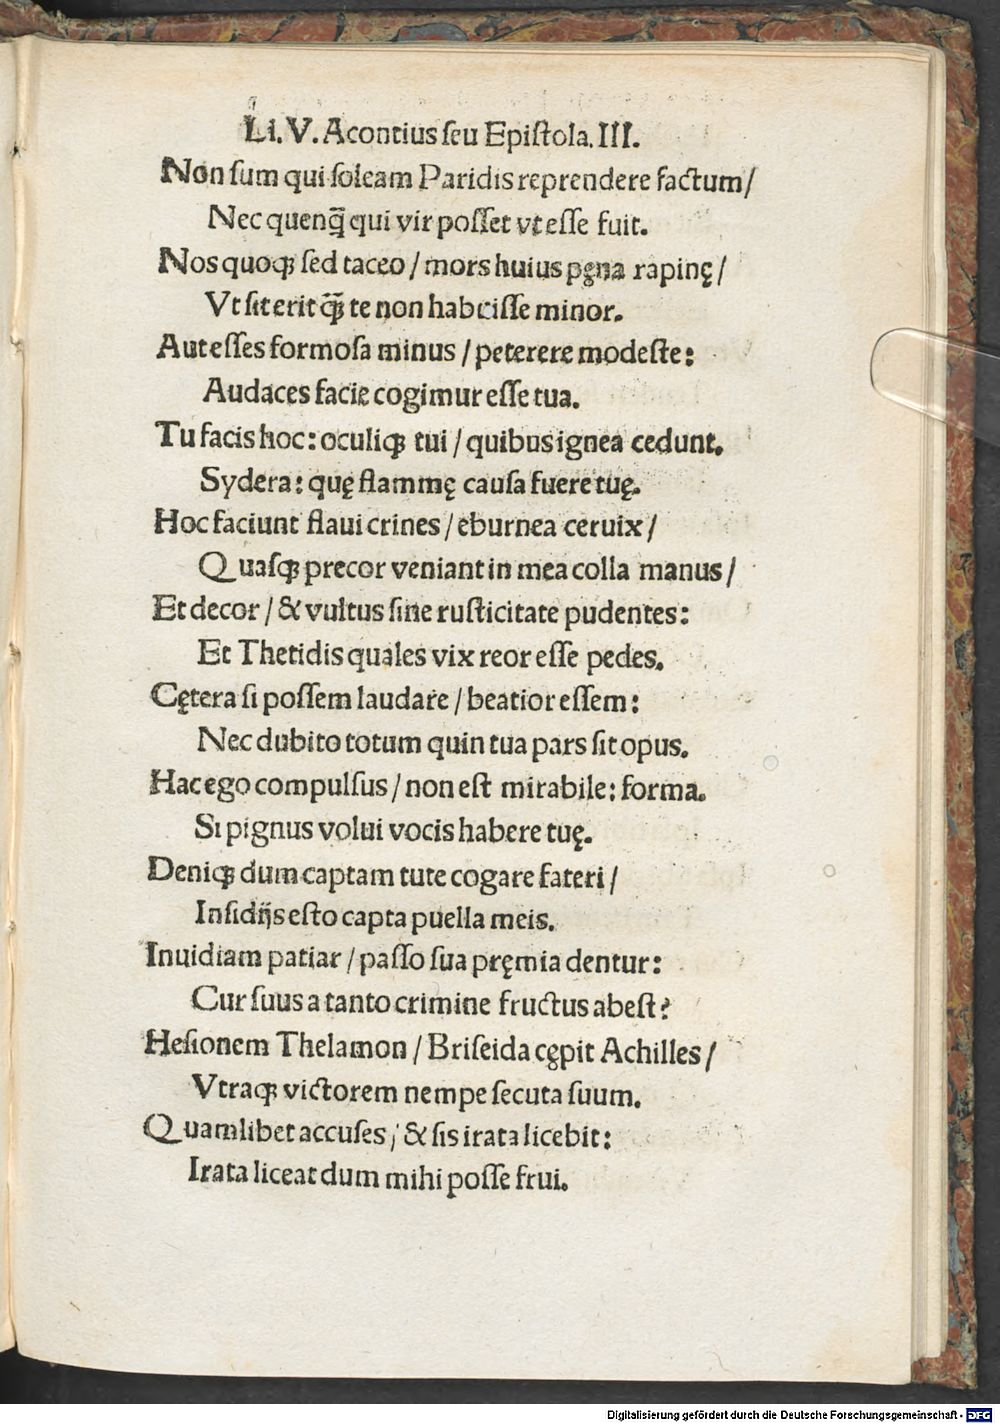 Li. V. Acontius seu Epistola. III.
Non sum qui soleam Paridis reprendere factum/
Nec quenq̃ qui vir posset vt esse fuit.
Nos quoqꝫ sed taceo / mors huius pęna rapinę /
Vt sit erit q̃ꝫ te non habuisse minor.
Aut esses formosa minus / peterere modeste:
Audaces facie cogimur esse tua.
Tu facis hoc: oculiqꝫ tui / quibus ignea cedunt.
Sydera: quę flammę causa fuere tuę.
Hoc faciunt flaui crines / eburnea ceruix /
Quasqꝫ precor veniant in mea colla manus /
Et decor / & vultus sine rusticitate pudentes:
Et Thetidis quales vix reor esse pedes.
Cętera si possem laudare / beatior essem:
Nec dubito totum quin tua pars sit opus.
Hac ego compulsus / non est mirabile: forma.
Si pignus volui vocis habere tuę.
Deniqꝫ dum captam tute cogare fateri /
Insidijs esto capta puella meis.
Inuidiam patiar / passo sua pręmia dentur:
Cur suus a tanto crimine fructus abest?
Hesionem Thelamon / Briseida cępit Achilles /
Vtraqꝫ victorem nempe secuta suum.
Quamlibet accuses / & sis irata licebit:
Irata liceat dum mihi posse frui.
Digitalisierung gefördert durch die Deutsche Forschungsgemeinschaft - DFG